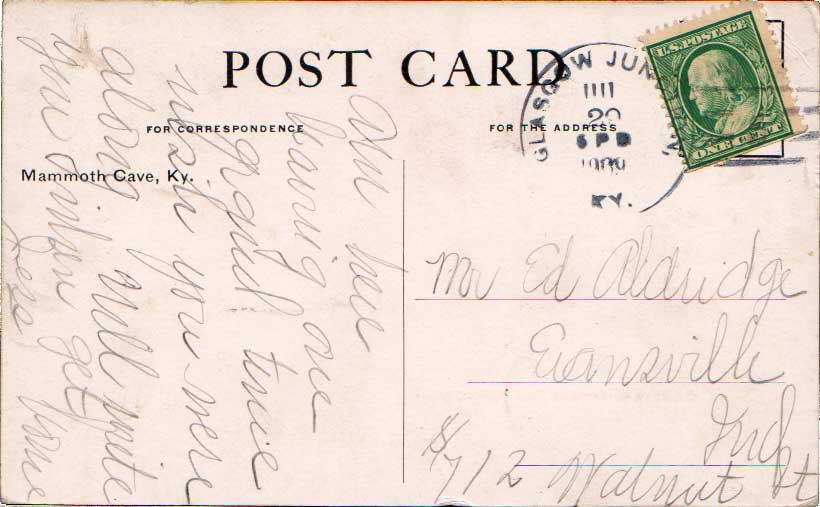 POST CARD
FOR CORRESPONDENCE
FOR THE ADDRESS
Mammoth Cave, Ky.
Am here
having one
grand time
wish you were
along will write
you get home
GLASGOW JUN
20
6 P
1909
KY.
U.S. POSTAGE
ONE CENT
Mr Ed Aldridge
Evansville
Ind
#712 Walnut St